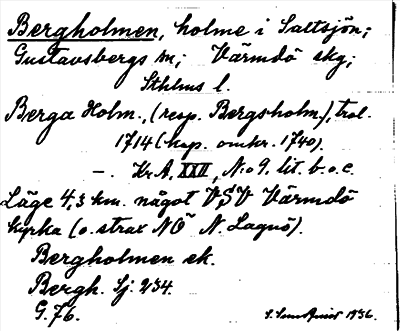 Bergholmen, holme i Saltsjön;
Gustavsbergs sn; Värmdö skg;
Sthlms l.
Berga Holm, (resp. Bergsholm), trol.
1714 (kop. omkr. 1740).
–. Kr. A, XXII, N:o 9. lit. b. o. c.
Läge 4,3 km. något VSV Värmdö
kyrka (o. strax NO N. Lagnö).
Bergholmen ek.
Bergh. Sj. 234.
G. 76.
1936.